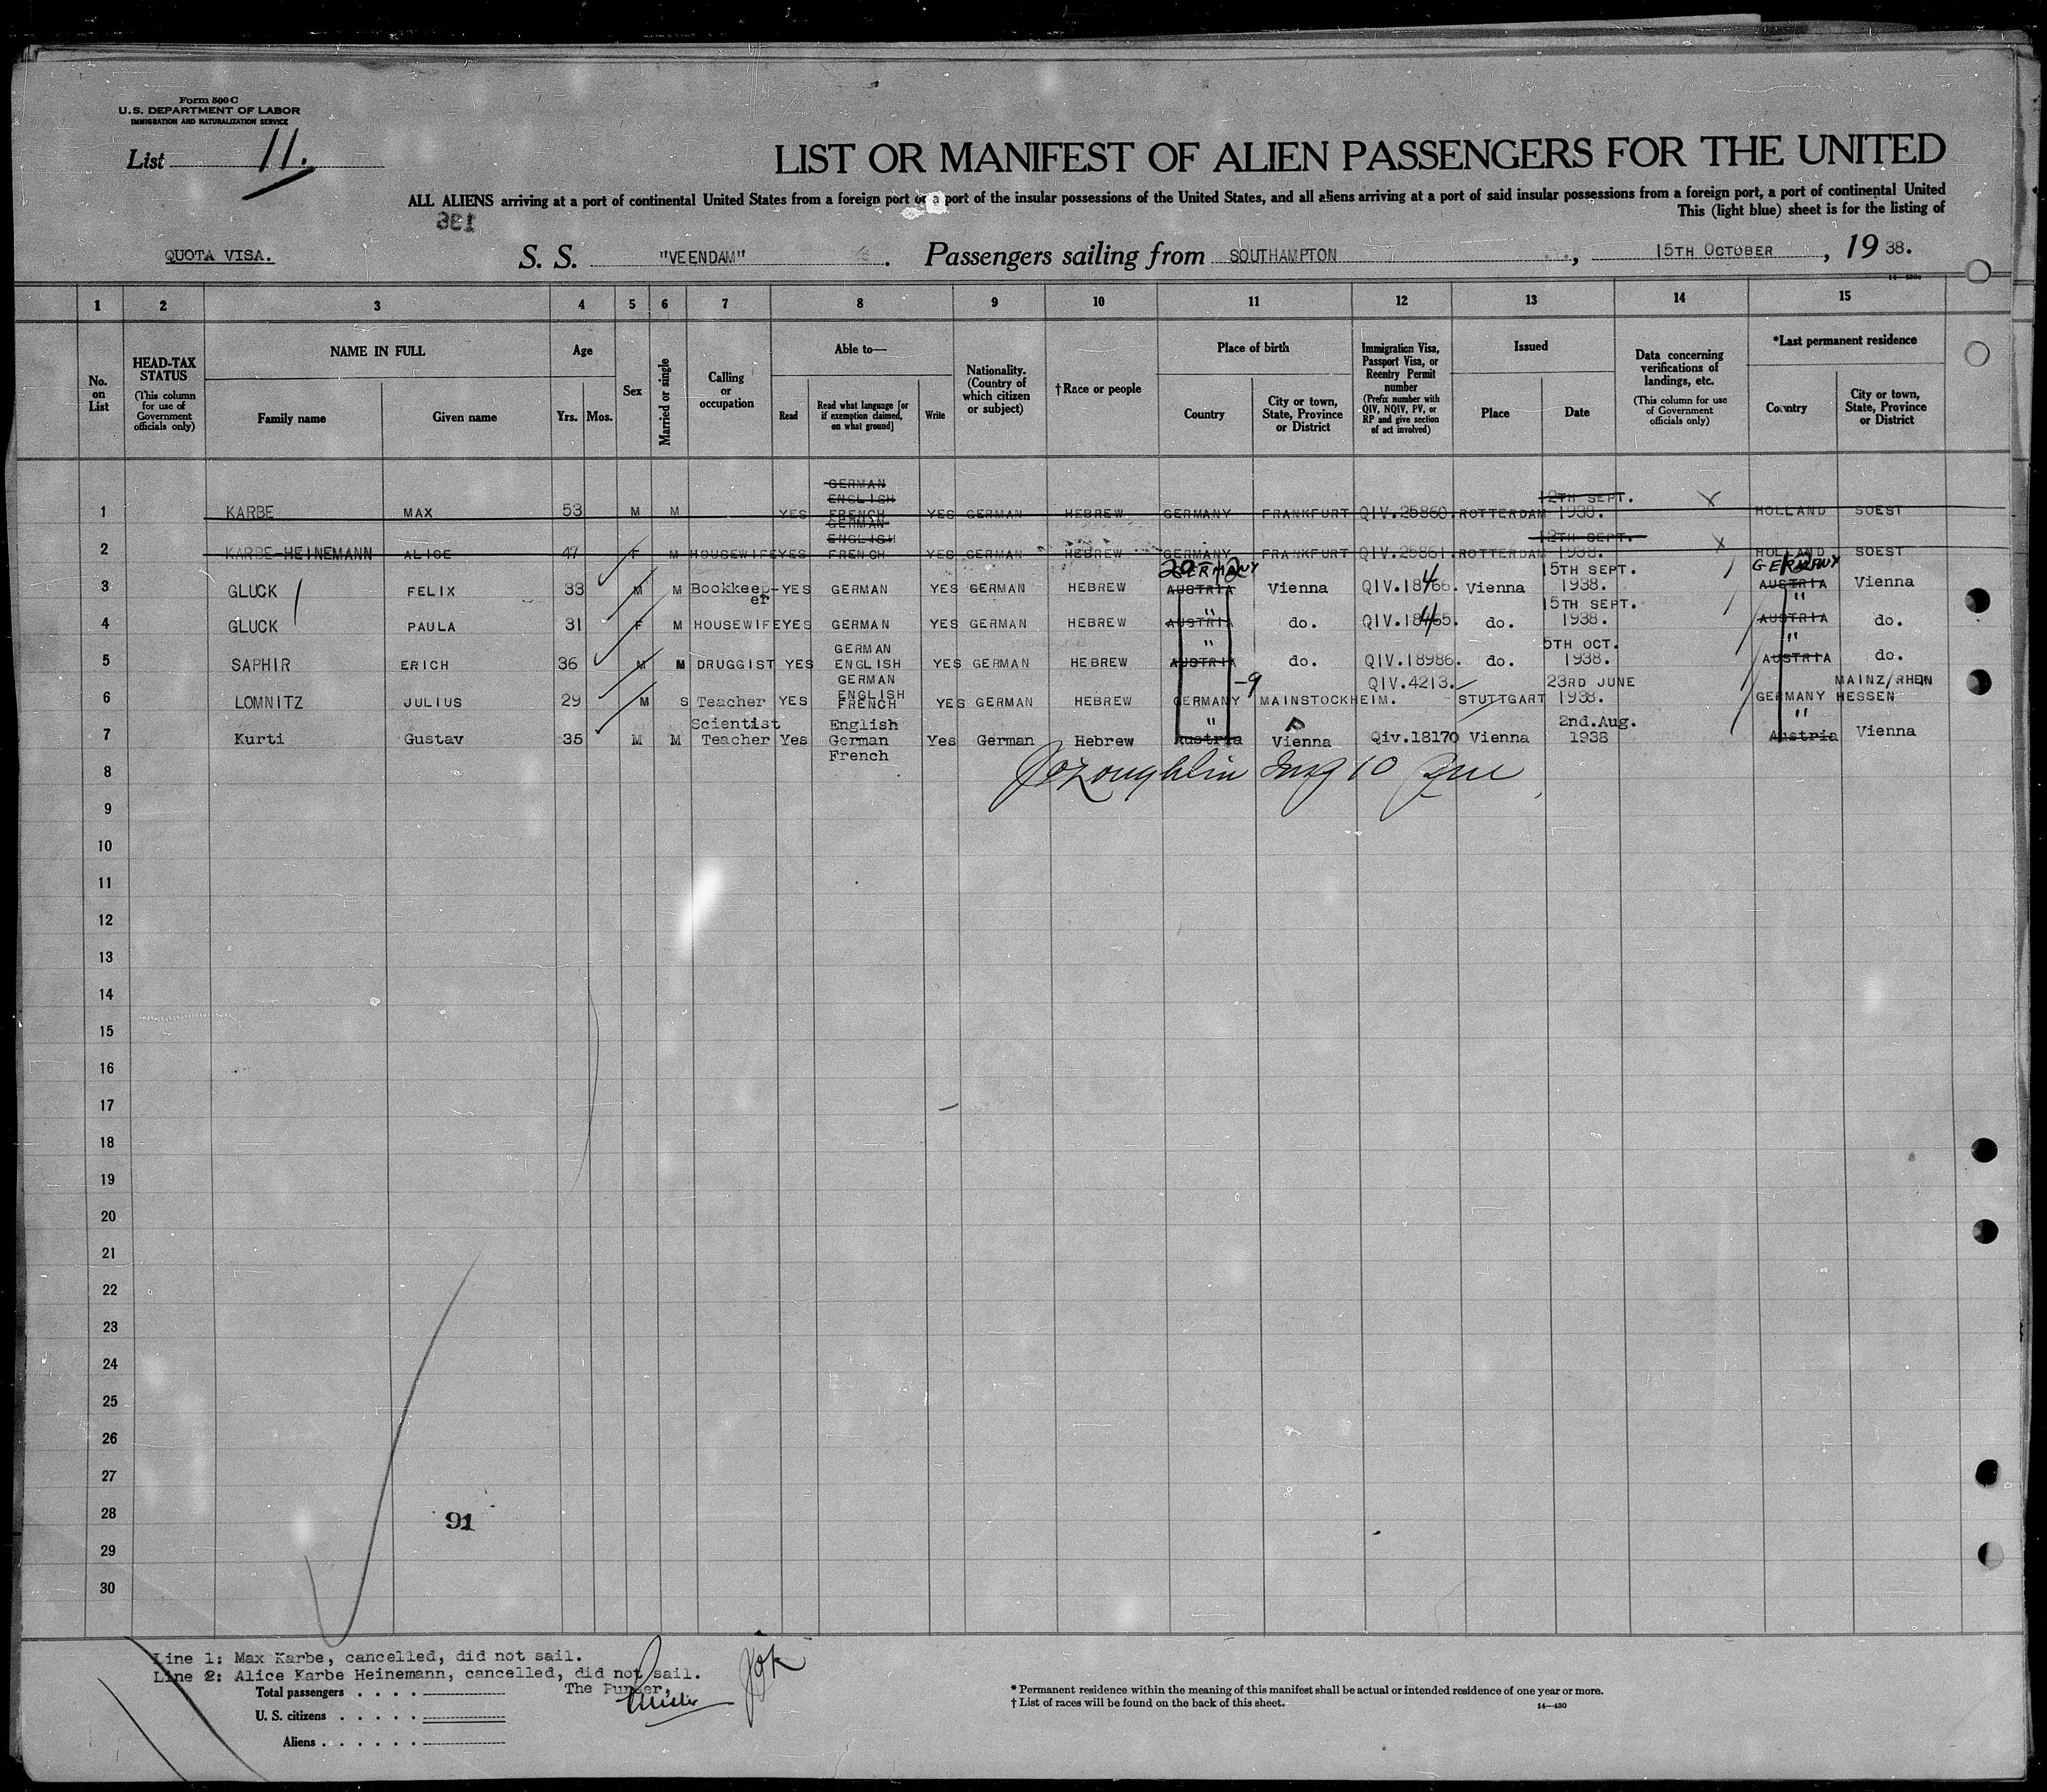 Form 500 C
U.S. DEPARTMENT OF LABOR
IMMIGRATION AND NATURALIZATION SERVICE
List 11.
LIST OR MANIFEST OF ALIEN PASSENGERS FOR THE UNITED
ALL ALIENS arriving at a port of continental United States from a foreign port or a port of the insular possessions of the United States, and all aliens arriving at a port of said insular possessions from a foreign port, a port of continental United
This (light blue) sheet is for the listing of
381
QUOTA VISA. S. S. "VEENDAM" . Passengers sailing from SOUTHAMPTON , 15TH OCTOBER , 19 38.
1 2 3 4 5 6 7 8 9 10 11 12 13 14 15
No. on List
HEAD-TAX STATUS (This column for use of Government officials only)
NAME IN FULL Family name Given name
Age Yrs. Mos.
Sex
Married or single
Calling or occupation
Able to— Read Read what language [or if exemption claimed, on what ground] Write
Nationality. (Country of which citizen or subject)
† Race or people
Place of birth Country City or town, State, Province or District
Immigration Visa, Passport Visa, or Reentry Permit number (Prefix number with QIV, NQIV, PV, or RP and give section of act involved)
Issued Place Date
Data concerning verifications of landings, etc. (This column for use of Government officials only)
*Last permanent residence Country City or town, State, Province or District
1 KARBE MAX 53 M M YES GERMAN ENGLISH FRENCH YES GERMAN HEBREW GERMANY FRANKFURT QIV.25860. ROTTERDAM 12TH SEPT. 1938. X HOLLAND SOEST
2 KARBE-HEINEMANN ALICE 47 F M HOUSEWIFE YES GERMAN ENGLISH FRENCH YES GERMAN HEBREW GERMANY FRANKFURT QIV.25861. ROTTERDAM 12TH SEPT. 1938. X HOLLAND SOEST
3 GLUCK FELIX 33 M M Bookkeep-er YES GERMAN YES GERMAN HEBREW GERMANY AUSTRIA Vienna QIV.18466. Vienna 15TH SEPT. 1938. GERMANY AUSTRIA Vienna
4 GLUCK PAULA 31 F M HOUSEWIFE YES GERMAN YES GERMAN HEBREW " AUSTRIA do. QIV.18465. do. 15TH SEPT. 1938. " AUSTRIA do.
5 SAPHIR ERICH 36 M M DRUGGIST YES GERMAN ENGLISH YES GERMAN HEBREW " AUSTRIA do. QIV.18986. do. 5TH OCT. 1938. " AUSTRIA do.
6 LOMNITZ JULIUS 29 M S Teacher YES GERMAN ENGLISH FRENCH YES GERMAN HEBREW GERMANY -9 MAINSTOCKHEIM. QIV.4213. STUTTGART 23RD JUNE 1938. GERMANY MAINZ/RHEIN HESSEN
7 Kurti Gustav 35 M M Scientist Teacher Yes English German French Yes German Hebrew " Austria Vienna Qiv.18170 Vienna 2nd.Aug. 1938 " Austria Vienna
8
9
10
11
12
13
14
15
16
17
18
19
20
21
22
23
24
25
26
27
28
29
30
91
Line 1: Max Karbe, cancelled, did not sail.
Line 2: Alice Karbe Heinemann, cancelled, did not sail.
The Purser,
Total passengers . . . .
U. S. citizens . . . . .
Aliens . . . . . .
* Permanent residence within the meaning of this manifest shall be actual or intended residence of one year or more.
† List of races will be found on the back of this sheet.
14—430